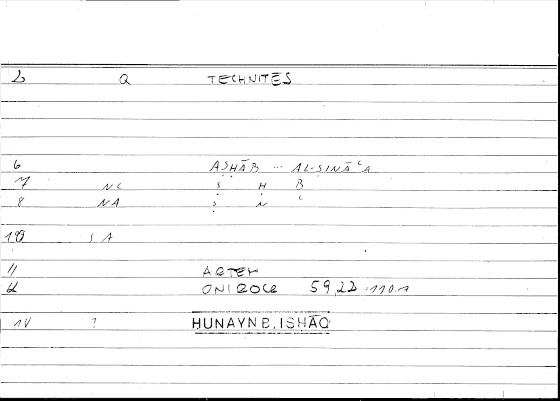 2 Q TECHNITES
6 AṢḤĀB ... AL-ṢINĀʿA
7 NC Ṣ Ḥ B
8 NA Ṣ N ʿ
10 S A
11 ARTEM
12 ONIROCR 59,22 110.1
14 ? HUNAYN B. ISHĀQ